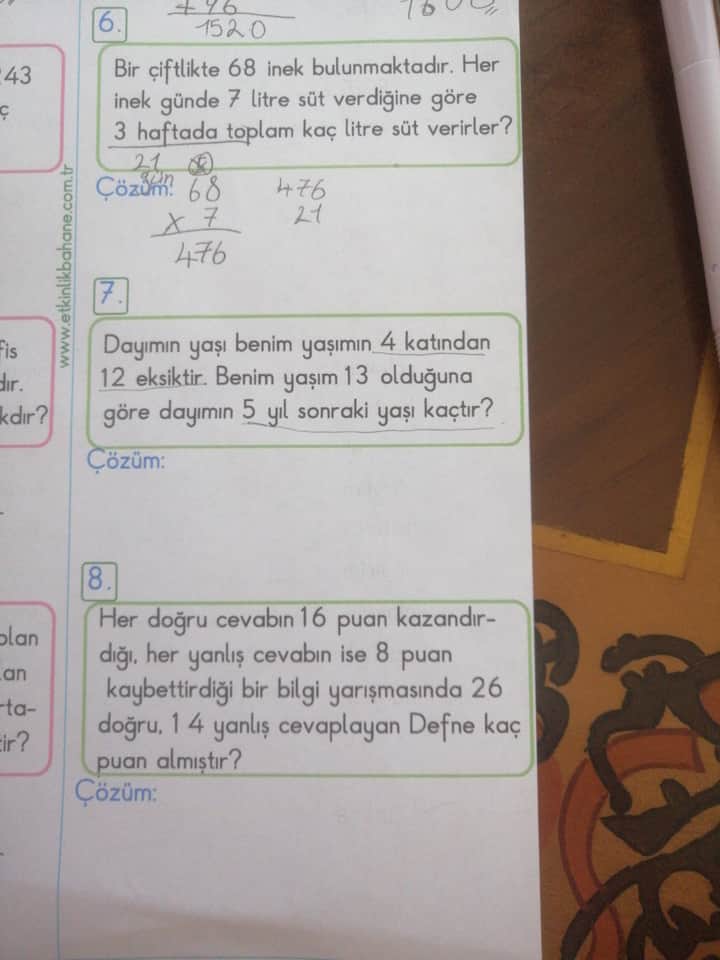 + 96
1520
1600
6.
Bir çiftlikte 68 inek bulunmaktadır. Her
inek günde 7 litre süt verdiğine göre
3 haftada toplam kaç litre süt verirler?
21
gün
Çözüm:
68
x 7
476
476
21
7.
Dayımın yaşı benim yaşımın 4 katından
12 eksiktir. Benim yaşım 13 olduğuna
göre dayımın 5 yıl sonraki yaşı kaçtır?
Çözüm:
8.
Her doğru cevabın 16 puan kazandır-
dığı, her yanlış cevabın ise 8 puan
kaybettirdiği bir bilgi yarışmasında 26
doğru, 14 yanlış cevaplayan Defne kaç
puan almıştır?
Çözüm:
www.etkinlikbahane.com.tr
243
ç
fis
dır.
kdır?
olan
an
rta-
tir?